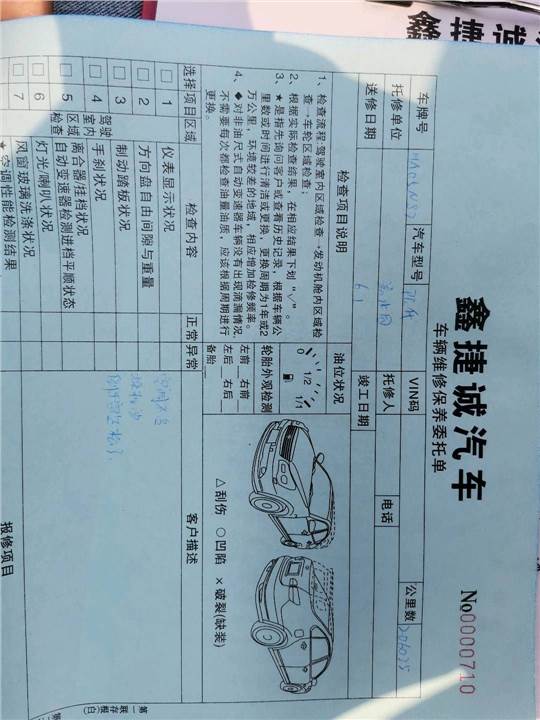 鑫捷诚
鑫捷诚汽车
车辆维修保养委托单
No0000710
车牌号 汽车型号 VIN码 公里数 206035
托修单位 托修人 电话
送修日期 6.1 竣工日期
检查项目说明 油位状况
1、检查流程:驾驶室内区域检查→发动机舱内区域检
查→车轮区域检查;
2、根据实际检查结果,在相应结果下划“√”。
3、★是指先询问客户或查看历史记录,根据车辆公
里数或时间进行清洁或更换,更换周期为1年或2
万公里,环境较差的地域,相应增加检修频率。
4、◆对非油尺式自动变速器车辆没有出现滴漏情况
不需要每次都检查油量油质,应该根据周期进行
更换。
0 1/2 1/1
轮胎外观检测
左前 右前
左后 右后
备胎
△刮伤 ○凹陷 ×破裂(缺装)
选择 项目 区域 检查内容 正常 异常 客户描述
□ 1 仪表显示状况
□ 2 方向盘自由间隙与重量
□ 3 制动踏板状况
□ 4 手刹状况
驾驶室内区域检查
□ 5 离合器/挂档状况
自动变速器检测进档平顺状态
□ 6 灯光/喇叭状况
□ 7 风窗玻璃洗涤状况
★空调性能检测结果
报修项目
第一联存根(白)